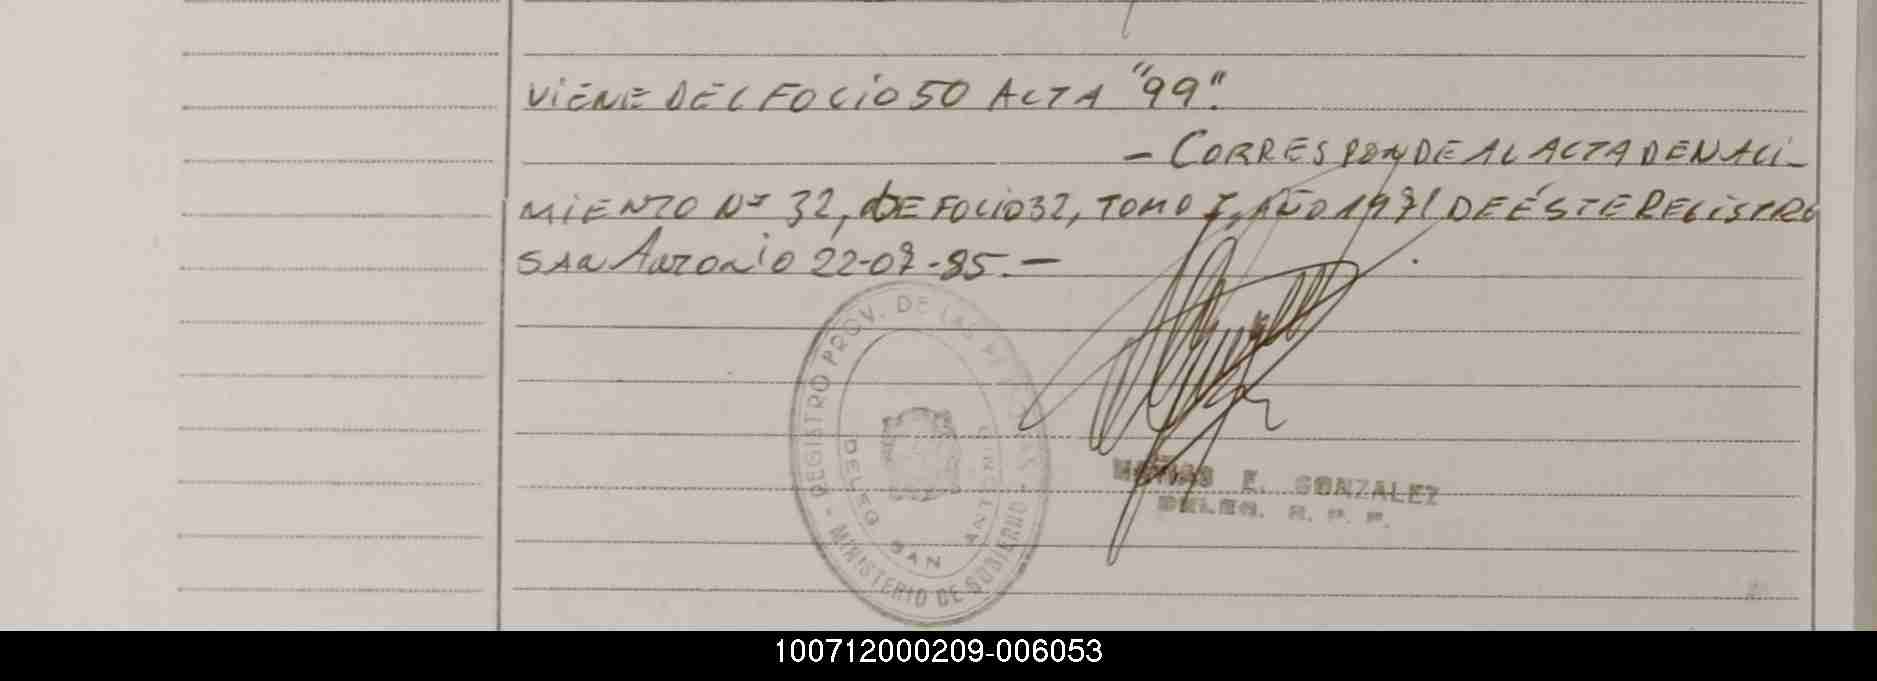 VIENE DEL FOLIO 50 ACTA "99".
- CORRESPONDE AL ACTA DE NACI-
MIENTO Nº 32, DE FOLIO 32, TOMO I, AÑO 1971 DE ÉSTE REGISTRO
SAN ANTONIO 22-07-85.-
REGISTRO PROV. DE LAS PERSONAS
- MINISTERIO DE GOBIERNO -
DELEG. SAN ANTONIO
E. GONZALEZ
DELEG. R. P. P.
100712000209-006053